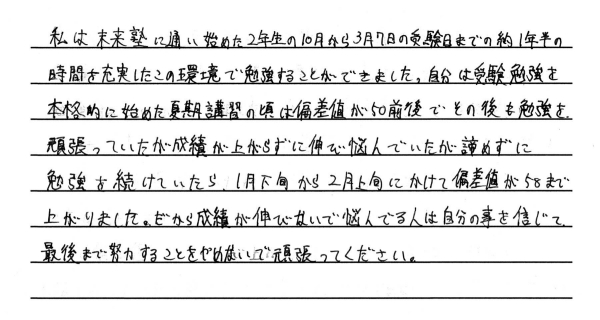 私は未来塾に通い始めた2年生の10月から3月7日の受験日までの約1年半の
時間を充実したこの環境で勉強することができました。自分は受験勉強を
本格的に始めた夏期講習の頃は偏差値が50前後でその後も勉強を
頑張っていたが成績が上がらずに伸び悩んでいたが諦めずに
勉強を続けていたら、1月下旬から2月上旬にかけて偏差値が58まで
上がりました。だから成績が伸びないで悩んでる人は自分の事を信じて
最後まで努力することをやめないで頑張ってください。